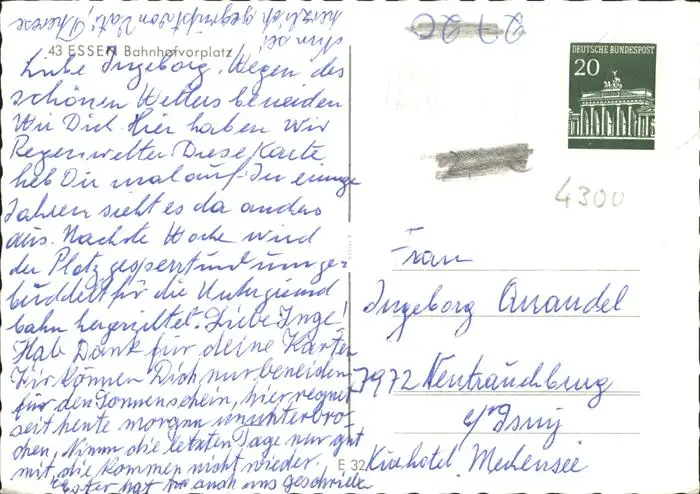 43 ESSEN Bahnhofvorplatz
Liebe Ingeborg. Wegen des
schönen Wetters beneiden
Wir Dich. Hier haben wir
Regenwetter. Diese Karte
heb Dir mal auf. In einige
Jahren sieht es da anders
aus. Nächste Woche wird
der Platz gesperrt und umge-
buddelt für die Untergrund
bahn hergerichtet. Liebe Inge!
Hab Dank für deine Karten
Wir können Dich nur beneiden
für den Sonnenschein, hier regnet
seit heute morgen ununterbro-
chen, Nimm die letzten Tage nur gut
mit, die kommen nicht wieder.
Ester hat auch uns geschrieben
herzlich gegrüßt von Vati, Therese
DEUTSCHE BUNDESPOST
20
4300
Frau
Ingeborg Quandel
7972 Neutrauchburg
b/Isny
Kurhotel
E 32